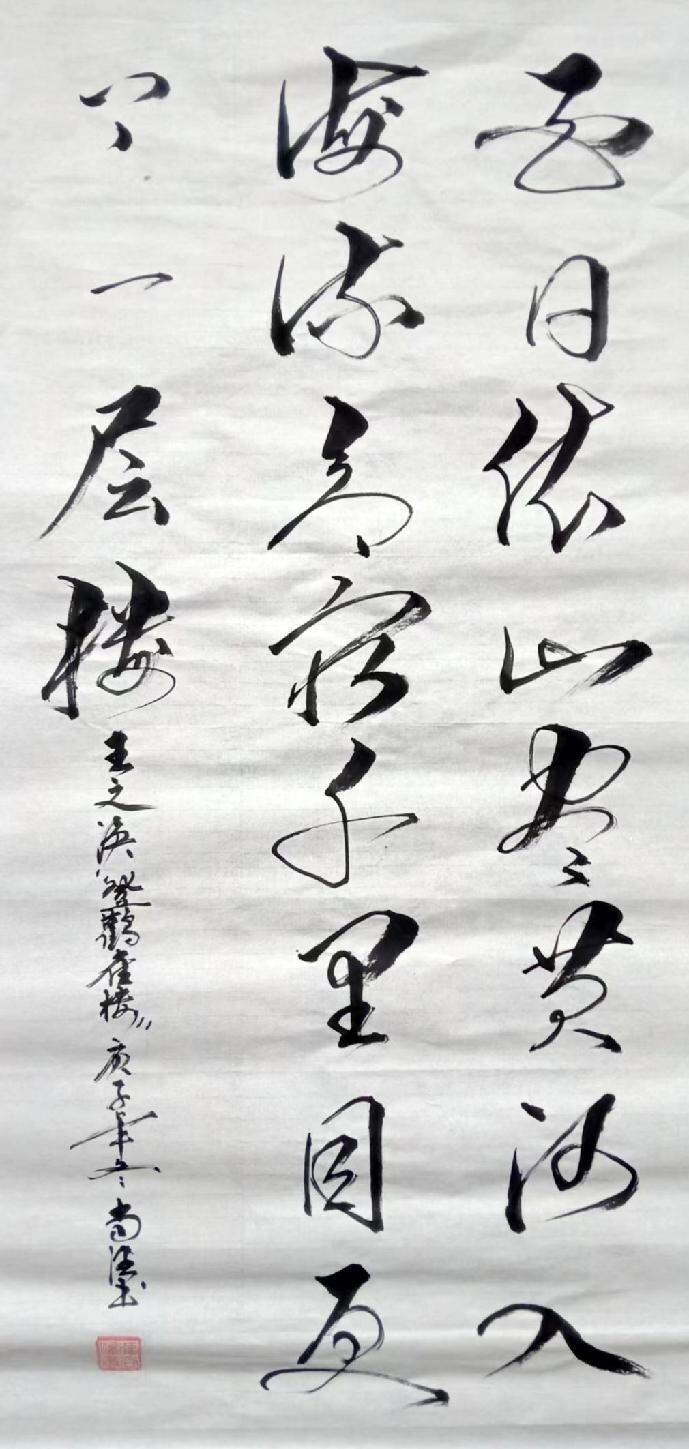 白日依山尽黄河入
海流欲穷千里目更
上一层楼
王之涣《登鹳雀楼》庚子年冬尚